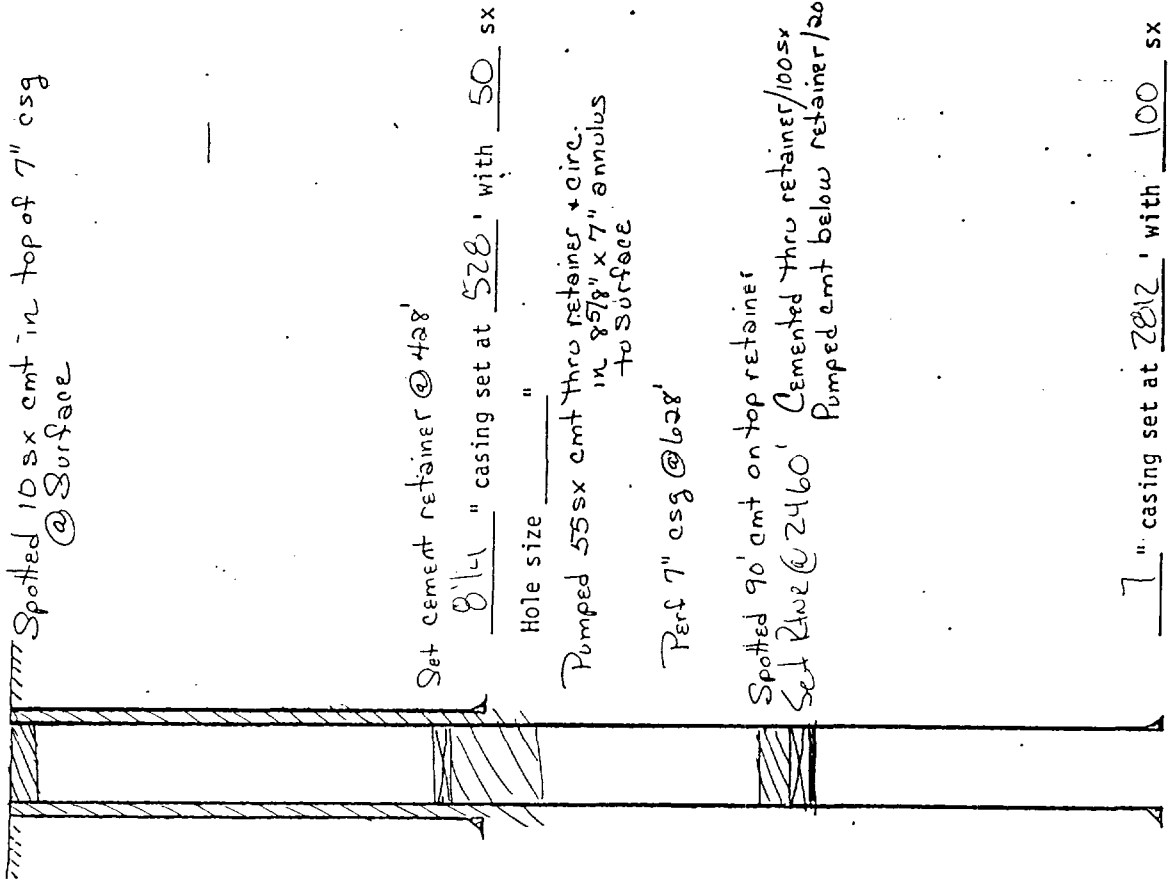 Spotted 10 sx cmt in top of 7" csg
@ Surface
Set cement retainer @ 428'
8 1/4 " casing set at 528 ' with 50 sx
Hole size "
Pumped 55sx cmt thru retainer & circ.
in 8 5/8" x 7" annulus
to surface
Perf 7" csg @ 628'
Spotted 90' cmt on top retainer
Set @ 2460' Cemented thru retainer/100sx
Pumped cmt below retainer/20
7 " casing set at 2812 ' with 100 sx